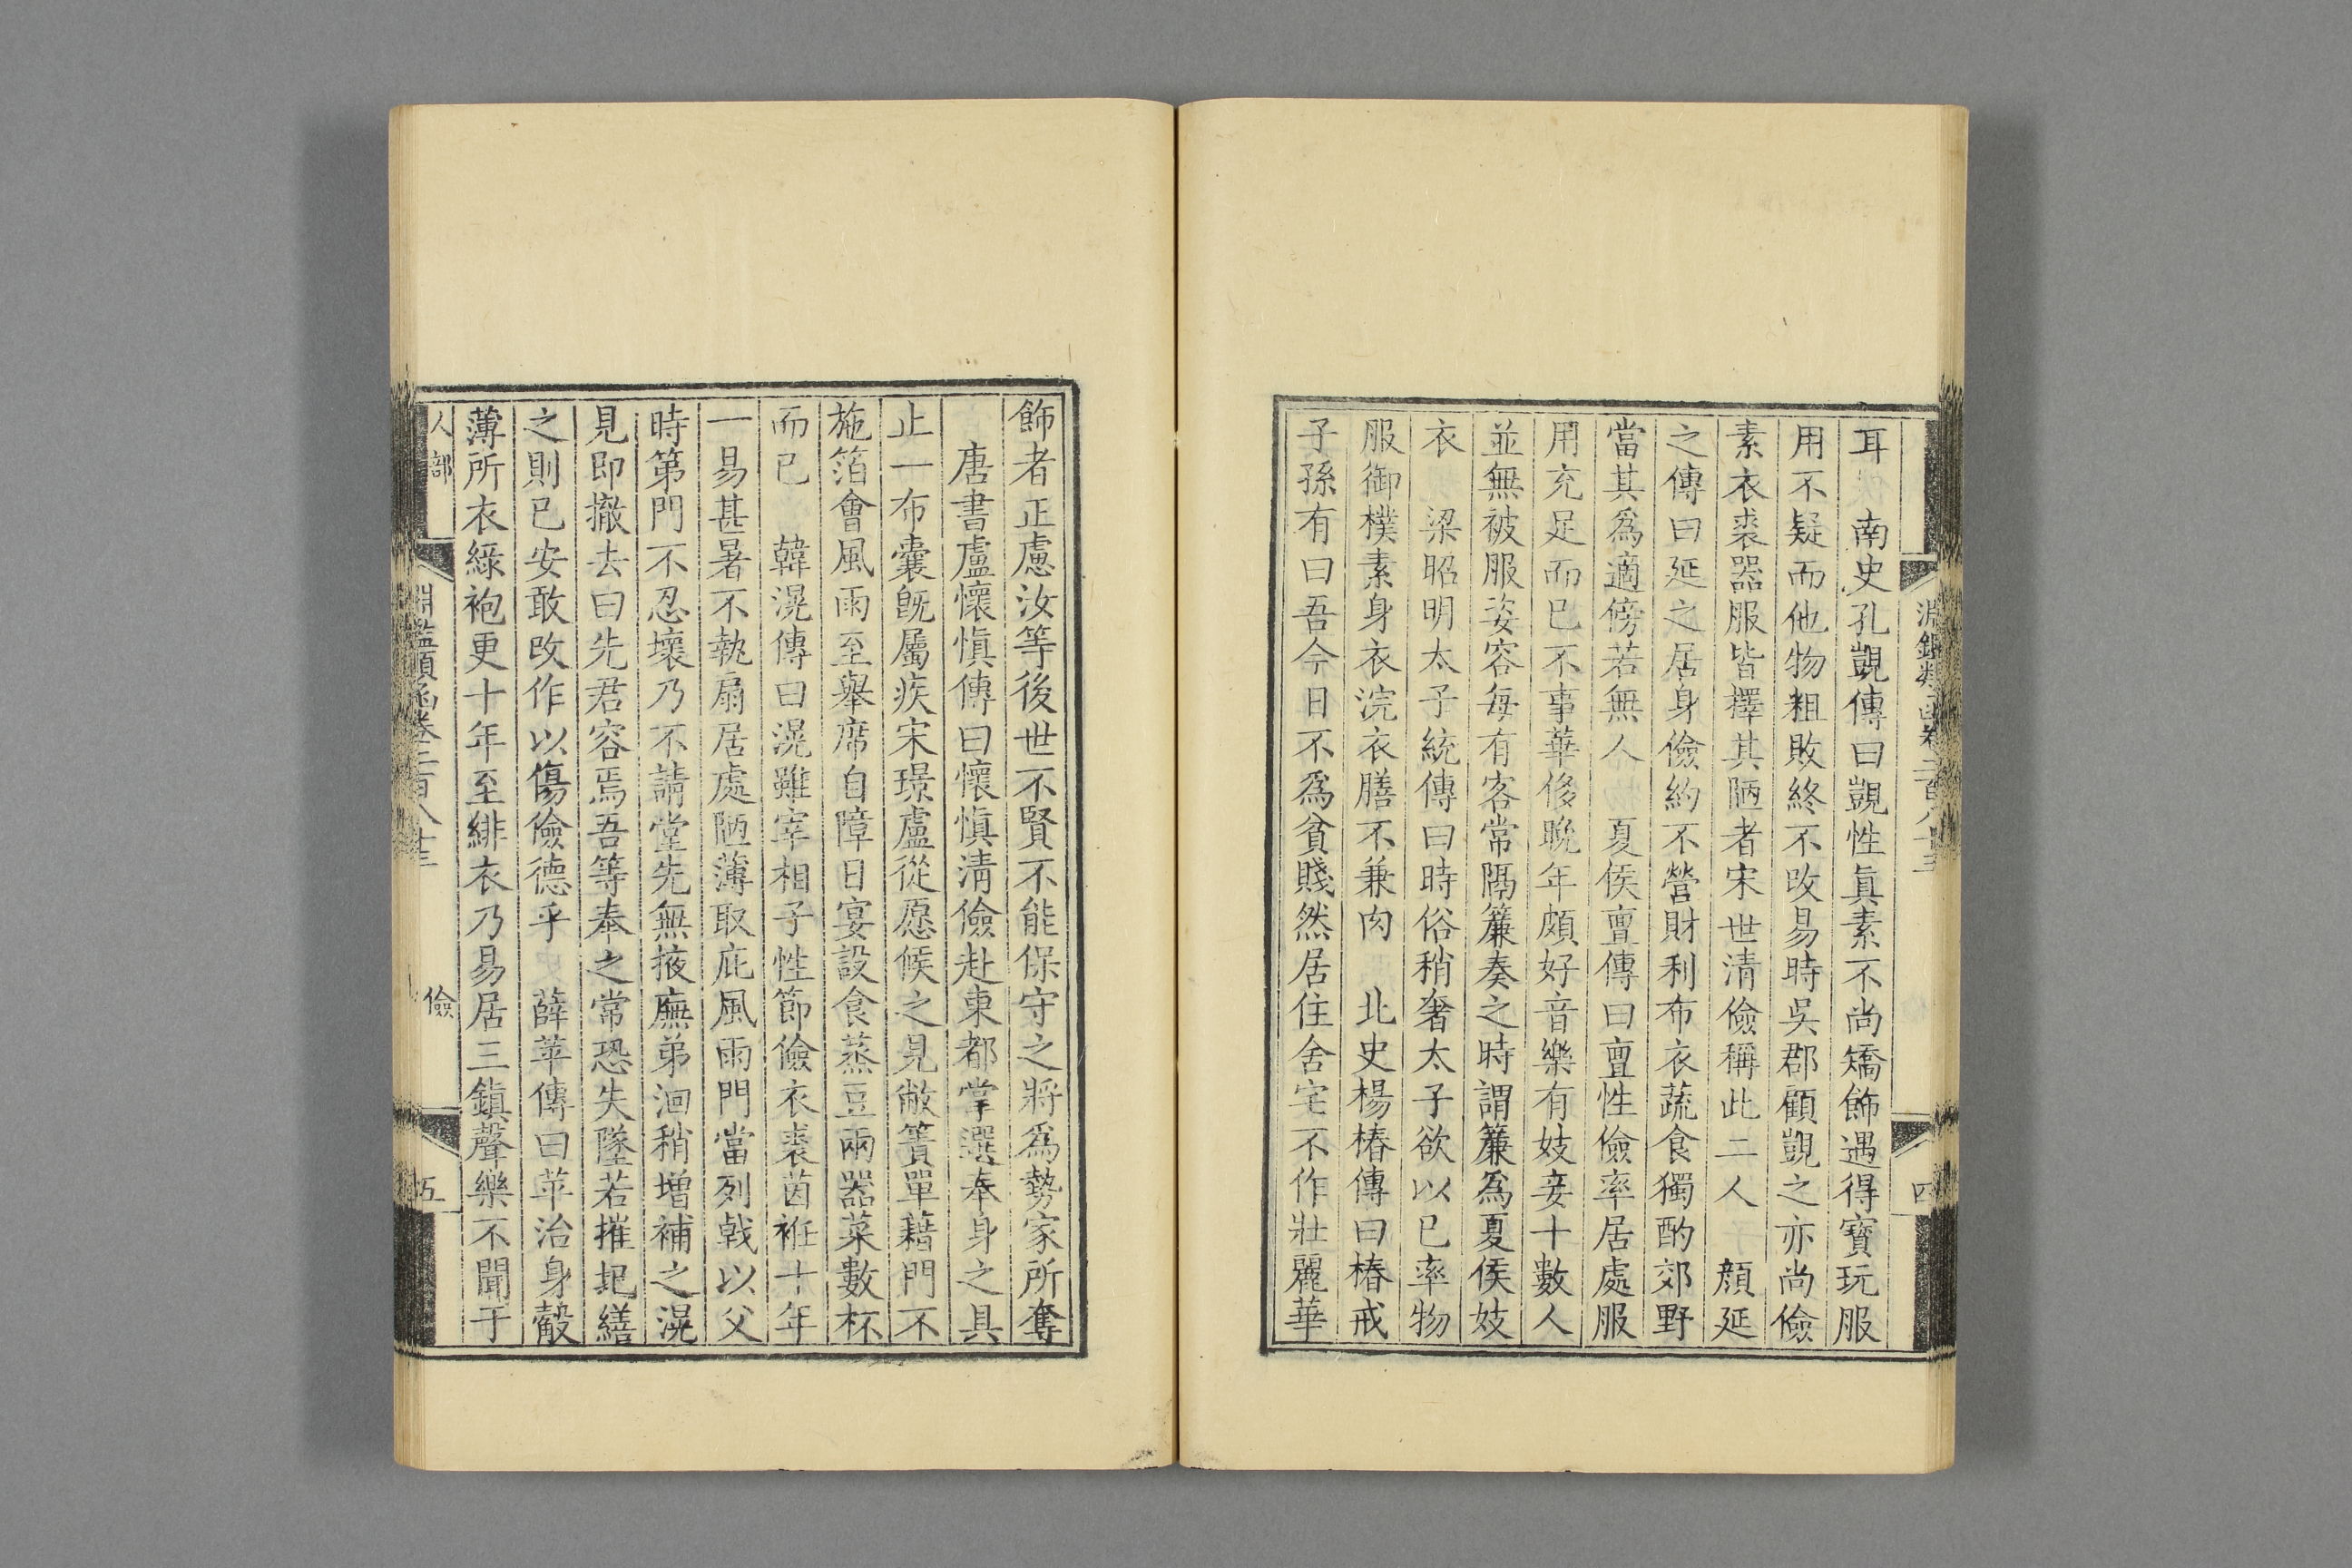 淵鑑類函卷二百八十三
四
耳　南史孔覬傳曰覬性眞素不尚矯飾遇得寶玩服
用不疑而他物粗敗終不改易時吳郡顧覬之亦尚儉
素衣裘器服皆擇其陋者宋世清儉稱此二人　顔延
之傳曰延之居身儉約不營財利布衣蔬食獨酌郊野
當其爲適傍若無人　夏侯亶傳曰亶性儉率居處服
用充足而已不事華侈晚年頗好音樂有妓妾十數人
並無被服姿容每有客常隔簾奏之時謂簾爲夏侯妓
衣　梁昭明太子統傳曰時俗稍奢太子欲以已率物
服御樸素身衣浣衣膳不兼肉　北史楊椿傳曰椿戒
子孫有曰吾今日不爲貧賤然居住舍宅不作壯麗華
飾者正慮汝等後世不賢不能保守之將爲勢家所奪
唐書盧懷愼傳曰懷愼淸儉赴東都掌選奉身之具
止一布囊旣屬疾宋璟盧從愿候之見敝簀單藉門不
施箔會風雨至舉席自障日宴設食蒸豆兩器菜數杯
而已　韓滉傳曰滉雖宰相子性節儉衣裘茵袵十年
一易甚暑不執扇居處陋薄取庇風雨門當列戟以父
時第門不忍壞乃不請堂先無掖廡弟洄稍增補之滉
見即撤去曰先君容焉吾等奉之常恐失墜若摧圮繕
之則已安敢改作以傷儉德乎　薛苹傳曰苹治身觳
薄所衣綠袍更十年至緋衣乃易居三鎭聲樂不聞于
人部
淵鑑類函卷二百八十三
儉
五